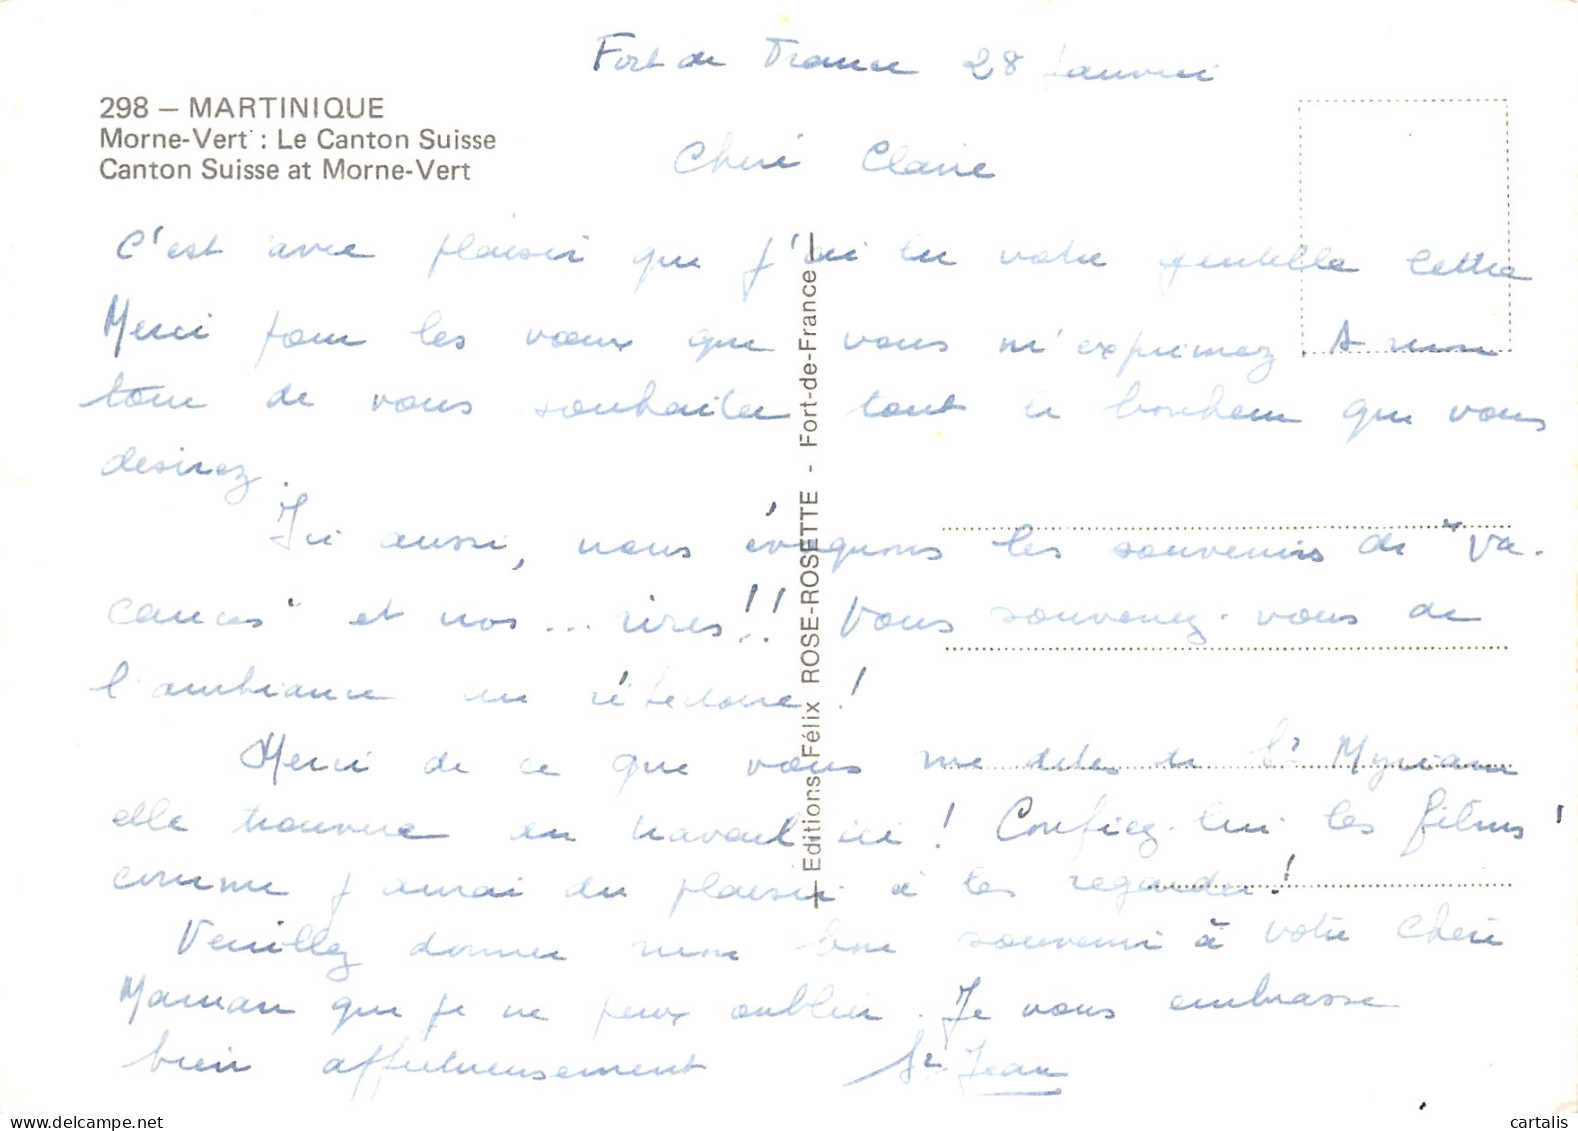 Fort de France 28 Janvier
298 – MARTINIQUE
Morne-Vert : Le Canton Suisse
Canton Suisse at Morne-Vert
Chérie Claire
C'est avec plaisir que j'ai lu votre gentille lettre
Merci pour les vœux que vous m'exprimez A mon
tour de vous souhaiter tout le bonheur que vous
desirez.
Ici aussi, nous évoquons les souvenirs de "va-
cances" et nos ... rires!! Vous souvenez-vous de
l'ambiance au réfectoire !
Merci de ce que vous me dites de Sr Myriam
elle trouvera du travail ici ! Confiez-lui les films'
comme j'aurai du plaisir à les regarder !
Veuillez donner mon bon souvenir à votre Chère
Maman que je ne peux oublier. Je vous embrasse
bien affectueusement Sr Jean
Editions Félix ROSE-ROSETTE - Fort-de-France
cartalis